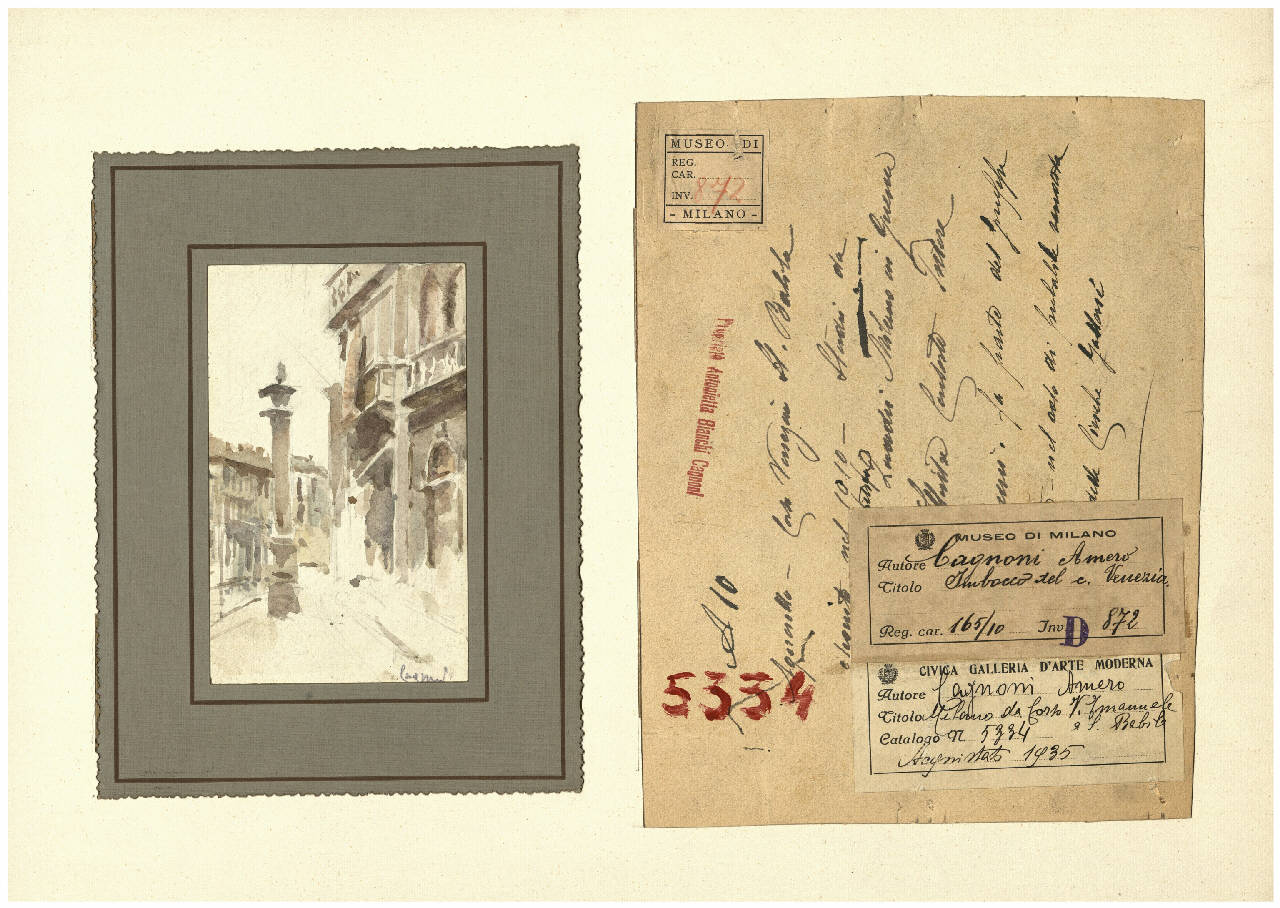 Cagnoni
MUSEO DI
REG.
CAR.
INV. 872
- MILANO -
Proprietà Antonietta Bianchi Cagnoni
A 10
Acquarello – Corso Venezia S. Babila
eseguito nel 1910 – Studio da
Milano in Guerra
fa parte del gruppo
nel caso di probabile
delle Civiche Gallerie
5334
MUSEO DI MILANO
Autore Cagnoni Amero
Titolo Imbocco del c. Venezia
Reg. car. 165/10 Inv. 872
D
CIVICA GALLERIA D'ARTE MODERNA
Autore Cagnoni Amero
Titolo Milano da Corso V. Emanuele
a S. Babila
Catalogo N 5334
Acquistato 1935